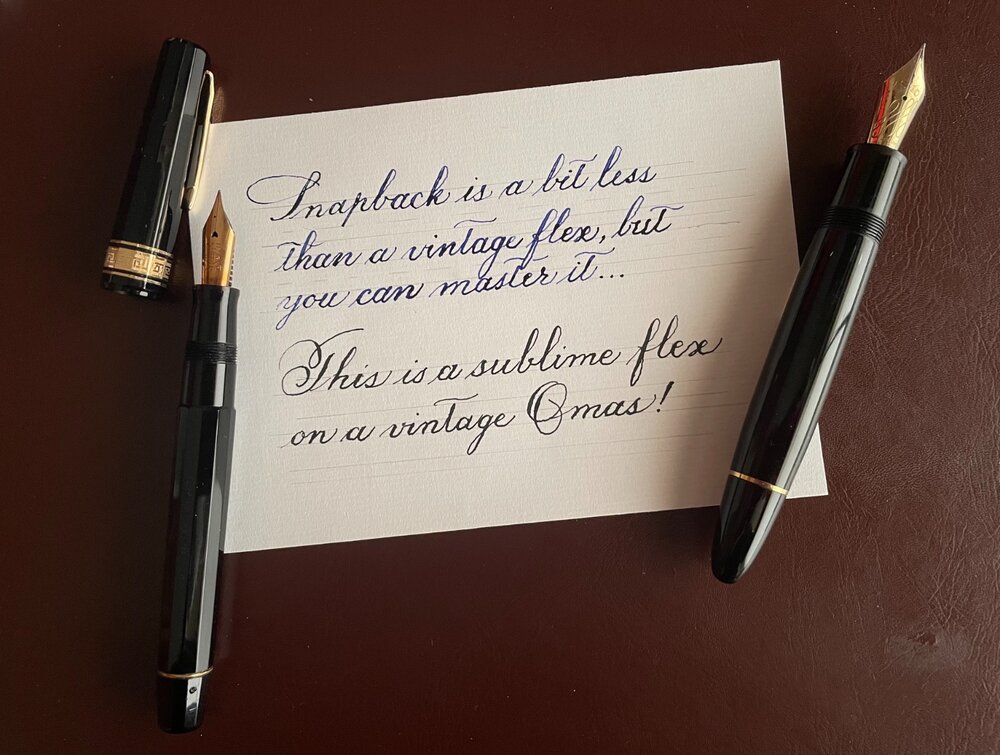 Snapback is a bit less
than a vintage flex, but
you can master it...
This is a sublime flex
on a vintage Omas!